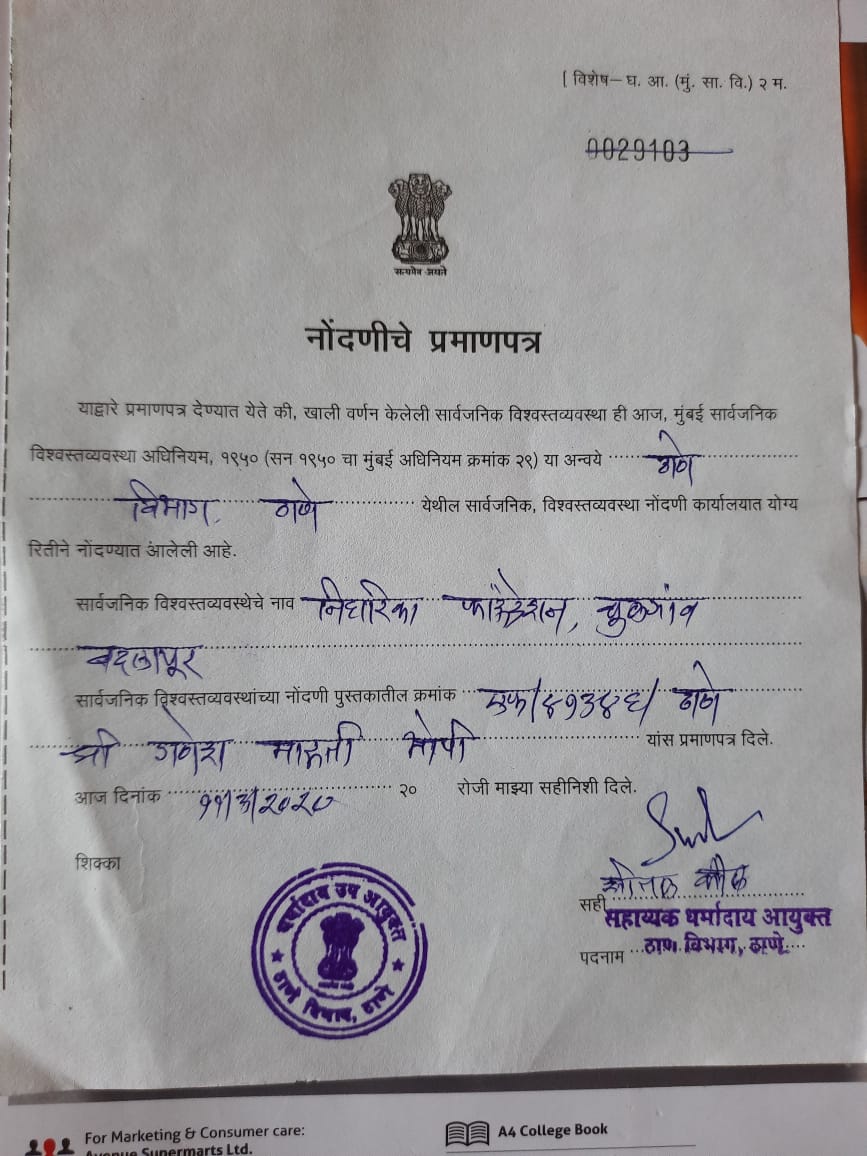 [ विशेष–घ. आ. (मुं. सा. वि.) २ म.
0029103
सत्यमेव जयते
नोंदणीचे प्रमाणपत्र
याद्वारे प्रमाणपत्र देण्यात येते की, खाली वर्णन केलेली सार्वजनिक विश्वस्तव्यवस्था ही आज, मुंबई सार्वजनिक
विश्वस्तव्यवस्था अधिनियम, १९५० (सन १९५० चा मुंबई अधिनियम क्रमांक २९) या अन्वये ठाणे
विभाग, ठाणे येथील सार्वजनिक, विश्वस्तव्यवस्था नोंदणी कार्यालयात योग्य
रितीने नोंदण्यात आलेली आहे.
सार्वजनिक विश्वस्तव्यवस्थेचे नाव निधारिका फाउंडेशन, कुळगांव
बदलापूर
सार्वजनिक विश्वस्तव्यवस्थांच्या नोंदणी पुस्तकातील क्रमांक एफ/४१३४६/ ठाणे
श्री गणेश मारुती भोपी यांस प्रमाणपत्र दिले.
आज दिनांक ११/३/२०२० २० रोजी माझ्या सहीनिशी दिले.
शिक्का
धर्मादाय उप आयुक्त
ठाणे विभाग, ठाणे
सही
सहाय्यक धर्मादाय आयुक्त
पदनाम ठाणे विभाग, ठाणे
For Marketing & Consumer care:
Avenue Supermarts Ltd.
A4 College Book